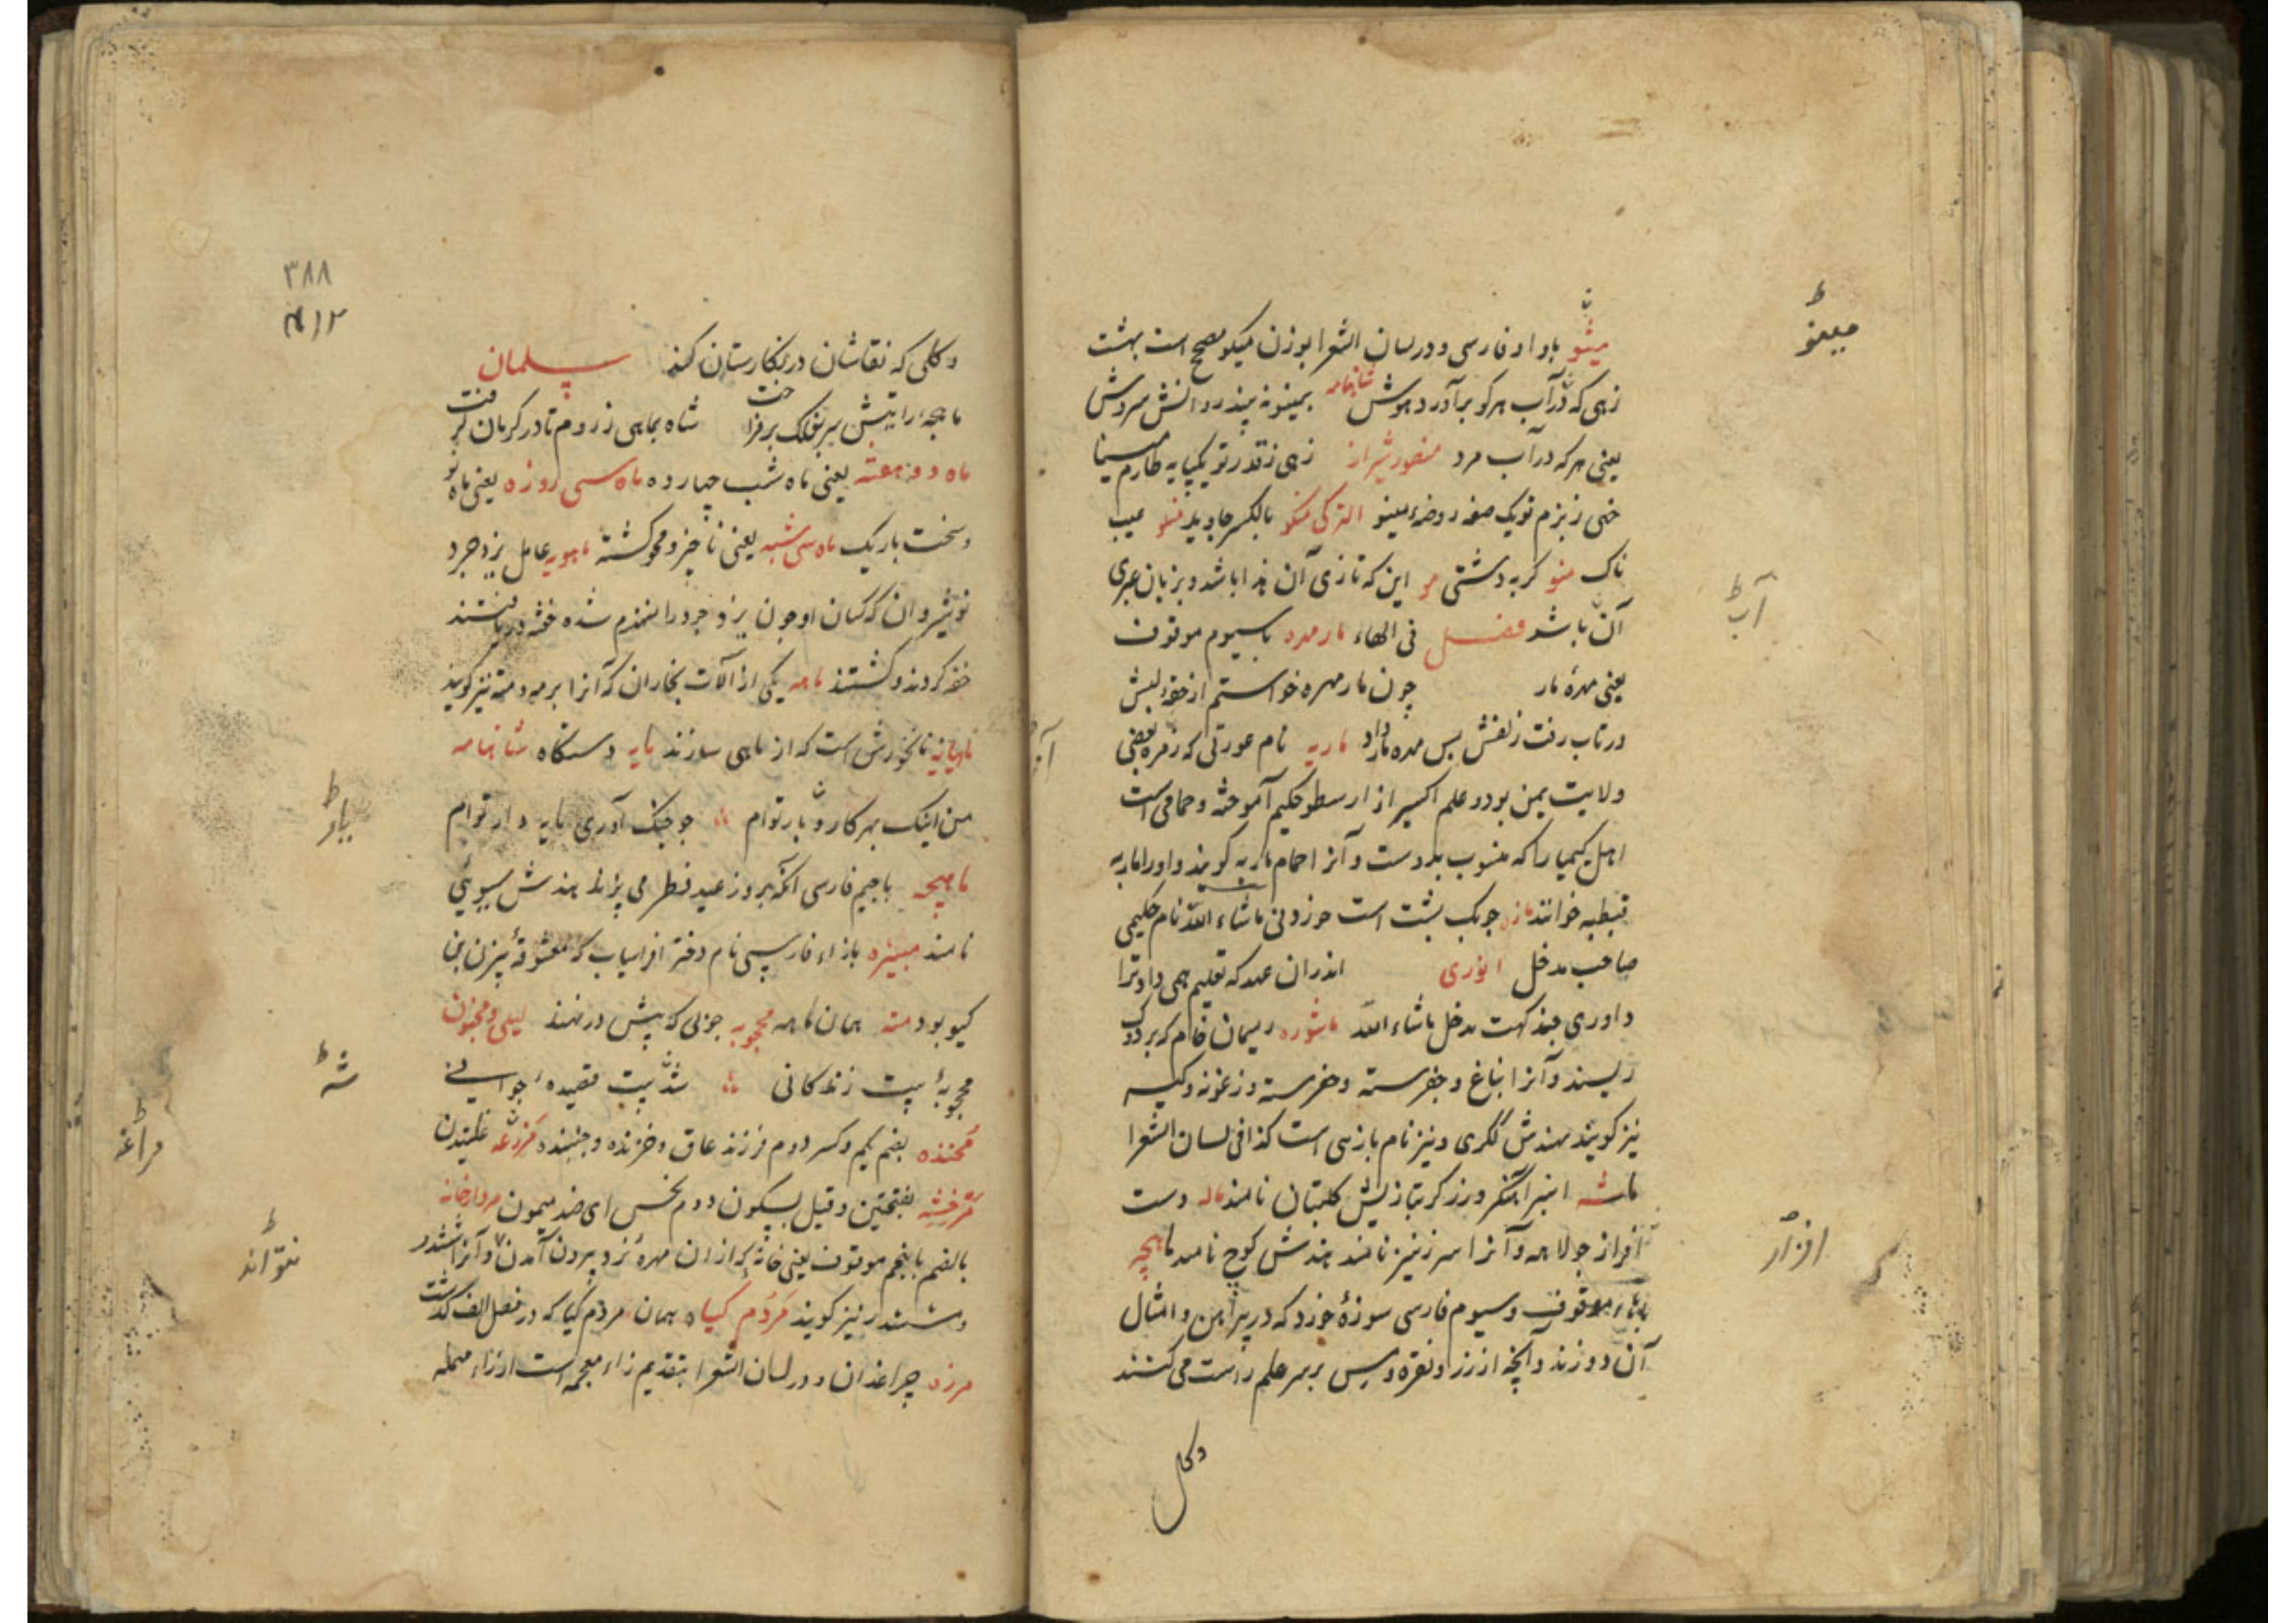 مینو باواو فارسی و در لسان الشعرا بوزن نیکو مصحح است بهشت
زهی که در آب هرکو برآورد هوش شاهنامه بمینو نه بیند روانش سروش
یعنی هرکه در آب مرد منصور شیراز زهی ز قدر تو یکپایه طارم مینا
خهی ز بزم تو یک صفه روضه مینو الترکی منکو بالکسر جاوید منو عیب
ناک منو گربه دشتی مو این که تازی آن هذا باشد و بزبان عبری
آن باشد فصل فی الهاء مارمهره باسیوم موقوف
یعنی مهرهٔ مار چون مارمهره خواستم از حقهٔ لبش
در تاب رفت زلفش بس مهره مار داد ماریه نام عورتی که
ولایت یمن بود و علم اکسیر از ارسطو حکیم آموخته و حمامی است
اهل کیمیا را که منسوب بدوست و آنرا حمام ماریه گویند و اورا ماریه
قبطیه خوانند مازه چوبک پشت است ماشاء الله نام حکیمی
صاحب مدخل انوری اندران عهد که تعلیم همی داد ترا
داوری چند کهت مدخل ماشاء الله ماشوره ریسمان خام که بر دوک
ریسند و آنرا بناغ و
نیز گویند هندش ککری و نیز نام بازیی است کذا فی لسان الشعرا
ماشه انبر آهنگر و زرگر بتازیش کلبتان نامند ماله دست
افراز جولاهه و آنرا نیز نامند هندش کوچ نامند ماهچه
باهاء موقوف و سیوم فارسی سوزهٔ خرد که در پیراهن و امثال
آن دوزند و آنچه از زر و نقره و مس بر سر علم راست می کنند
وکلی
مینو
آب
افزار
۳۸۸
۴۱۲
وکلی که نقاشان در نکارستان کنند سلمان
ماهچهٔ رایتش سر بفلک برفراخت شاه بماهی ز روم تا در کرمان گرفت
ماه دو هفته یعنی ماه شب چهارده ماه سی روزه یعنی ماه نو
و سخت باریک ماه سی شبه یعنی ناچیز و محو گشته ماهویه عامل یزدجرد
نوشیروان که کسان او چون یزدجرد را منهزم شده خفته دریافتند
خفه کردند و کشتند ماهه یکی از آلات نجاران که آنرا برمه و مته نیز گویند
ماهیانه نانخورش است که از ماهی سازند مایه دستگاه شاهنامه
من اینک بهر کار و بار توام چو جنگ آوری مایه دار توام
ماهیچه باجیم فارسی آنکه بروز عید فطر می پزند هندش سیوئی
نامند منیژه بازاء فارسی نام دختر افراسیاب که معشوقهٔ بیژن بن
گیو بود مته همان ماهه محجوبه چوبی که پیش در نهند لیلی و مجنون
محجوبهٔ بیت زندگانی شه بیت قصیدهٔ جوانی
مخنده بضم یکم و کسر دوم فرزند عاق و خزنده و جنبنده مراغه غلتیدن
مرخشه بفتحتین و قیل بسکون دوم نحس ای ضد میمون مردارخانه
بالضم باپنجم موقوف یعنی خانهٔ که از ان مهرهٔ نرد بیرون آمدن نتواند و آنرا ششدر
و شسندر نیز گویند مردم گیاه همان مردم گیا که در فصل الف گذشت
مرزه چراغدان و در لسان الشعرا بتقدیم زاء معجمه است از راء مهمله
بار
شه
مراغه
نتواند